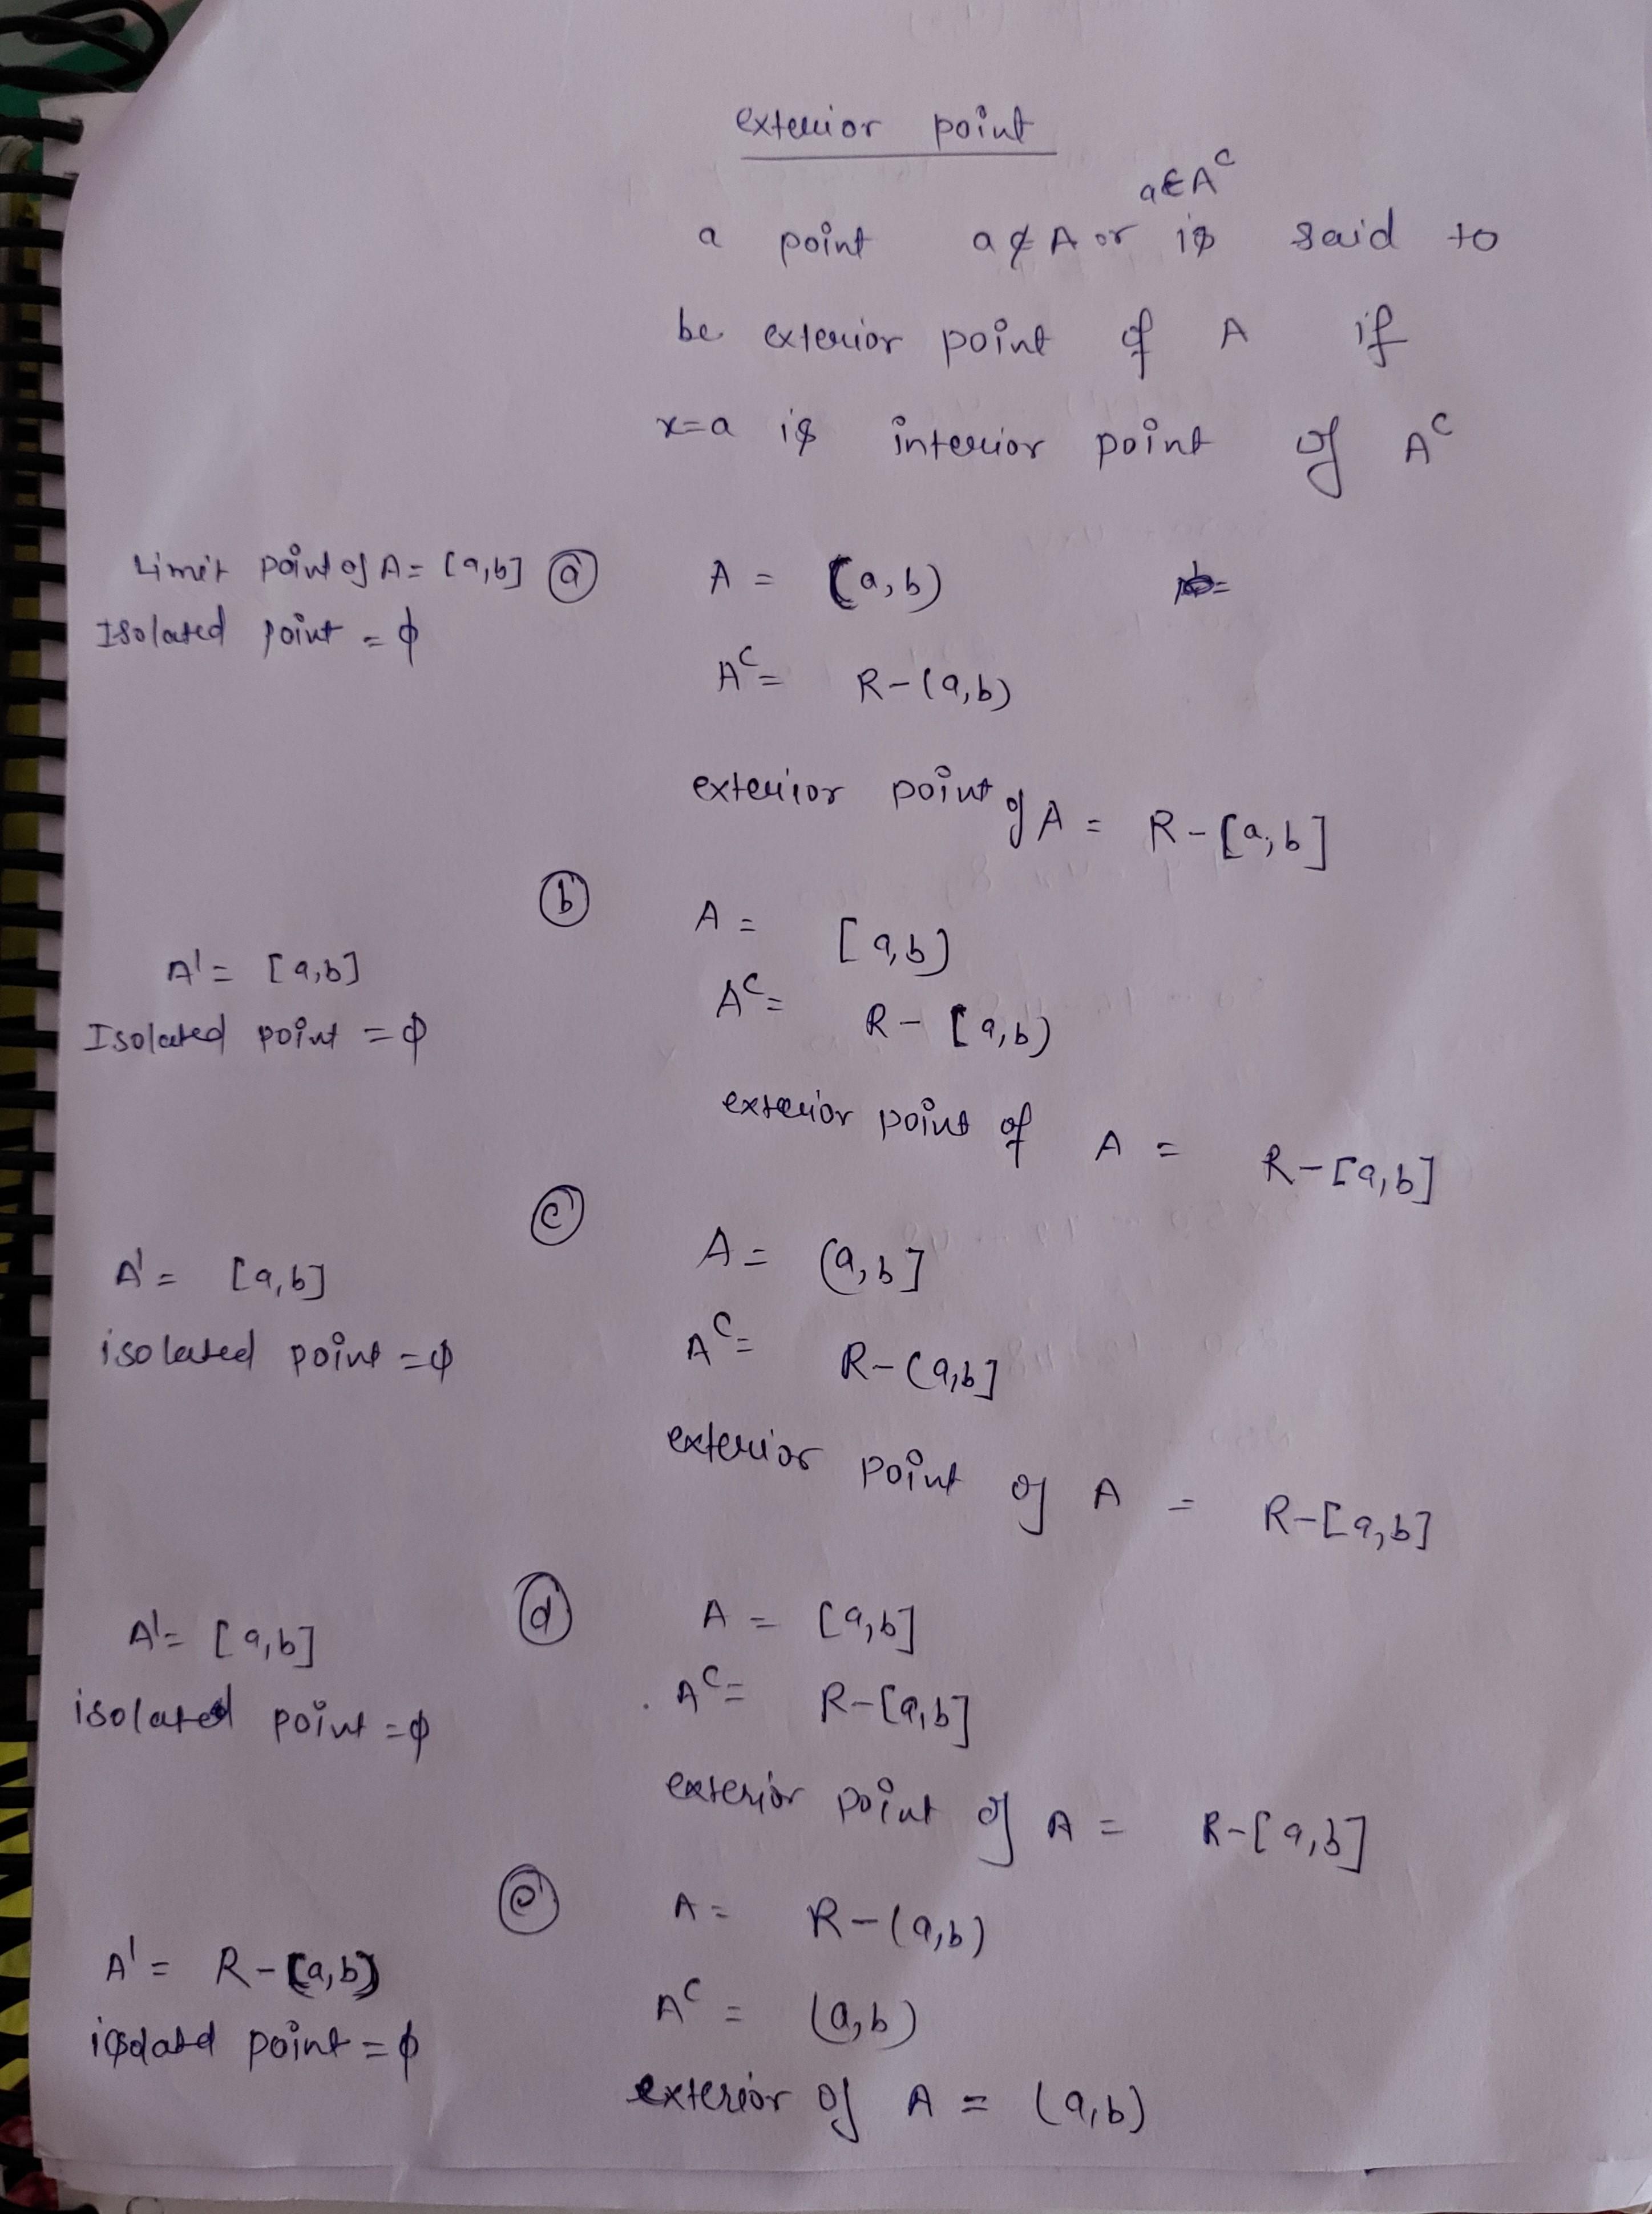 exterior point
a ∈ A^c
a point a ∉ A or is said to
be exterior point of A if
x=a is interior point of A^c
Limit point of A = [a,b] ⓐ A = (a,b)
Isolated point = ϕ
A^c = R-(a,b)
exterior point of A = R-[a,b]
ⓑ A = [a,b)
A' = [a,b]
A^c = R-[a,b)
Isolated point = ϕ
exterior point of A = R-[a,b]
ⓒ A = (a,b]
A' = [a,b]
A^c = R-(a,b]
isolated point = ϕ
exterior point of A = R-[a,b]
ⓓ A = [a,b]
A' = [a,b]
A^c = R-[a,b]
isolated point = ϕ
exterior point of A = R-[a,b]
ⓔ A = R-(a,b)
A' = R-(a,b)
A^c = (a,b)
isolated point = ϕ
exterior of A = (a,b)